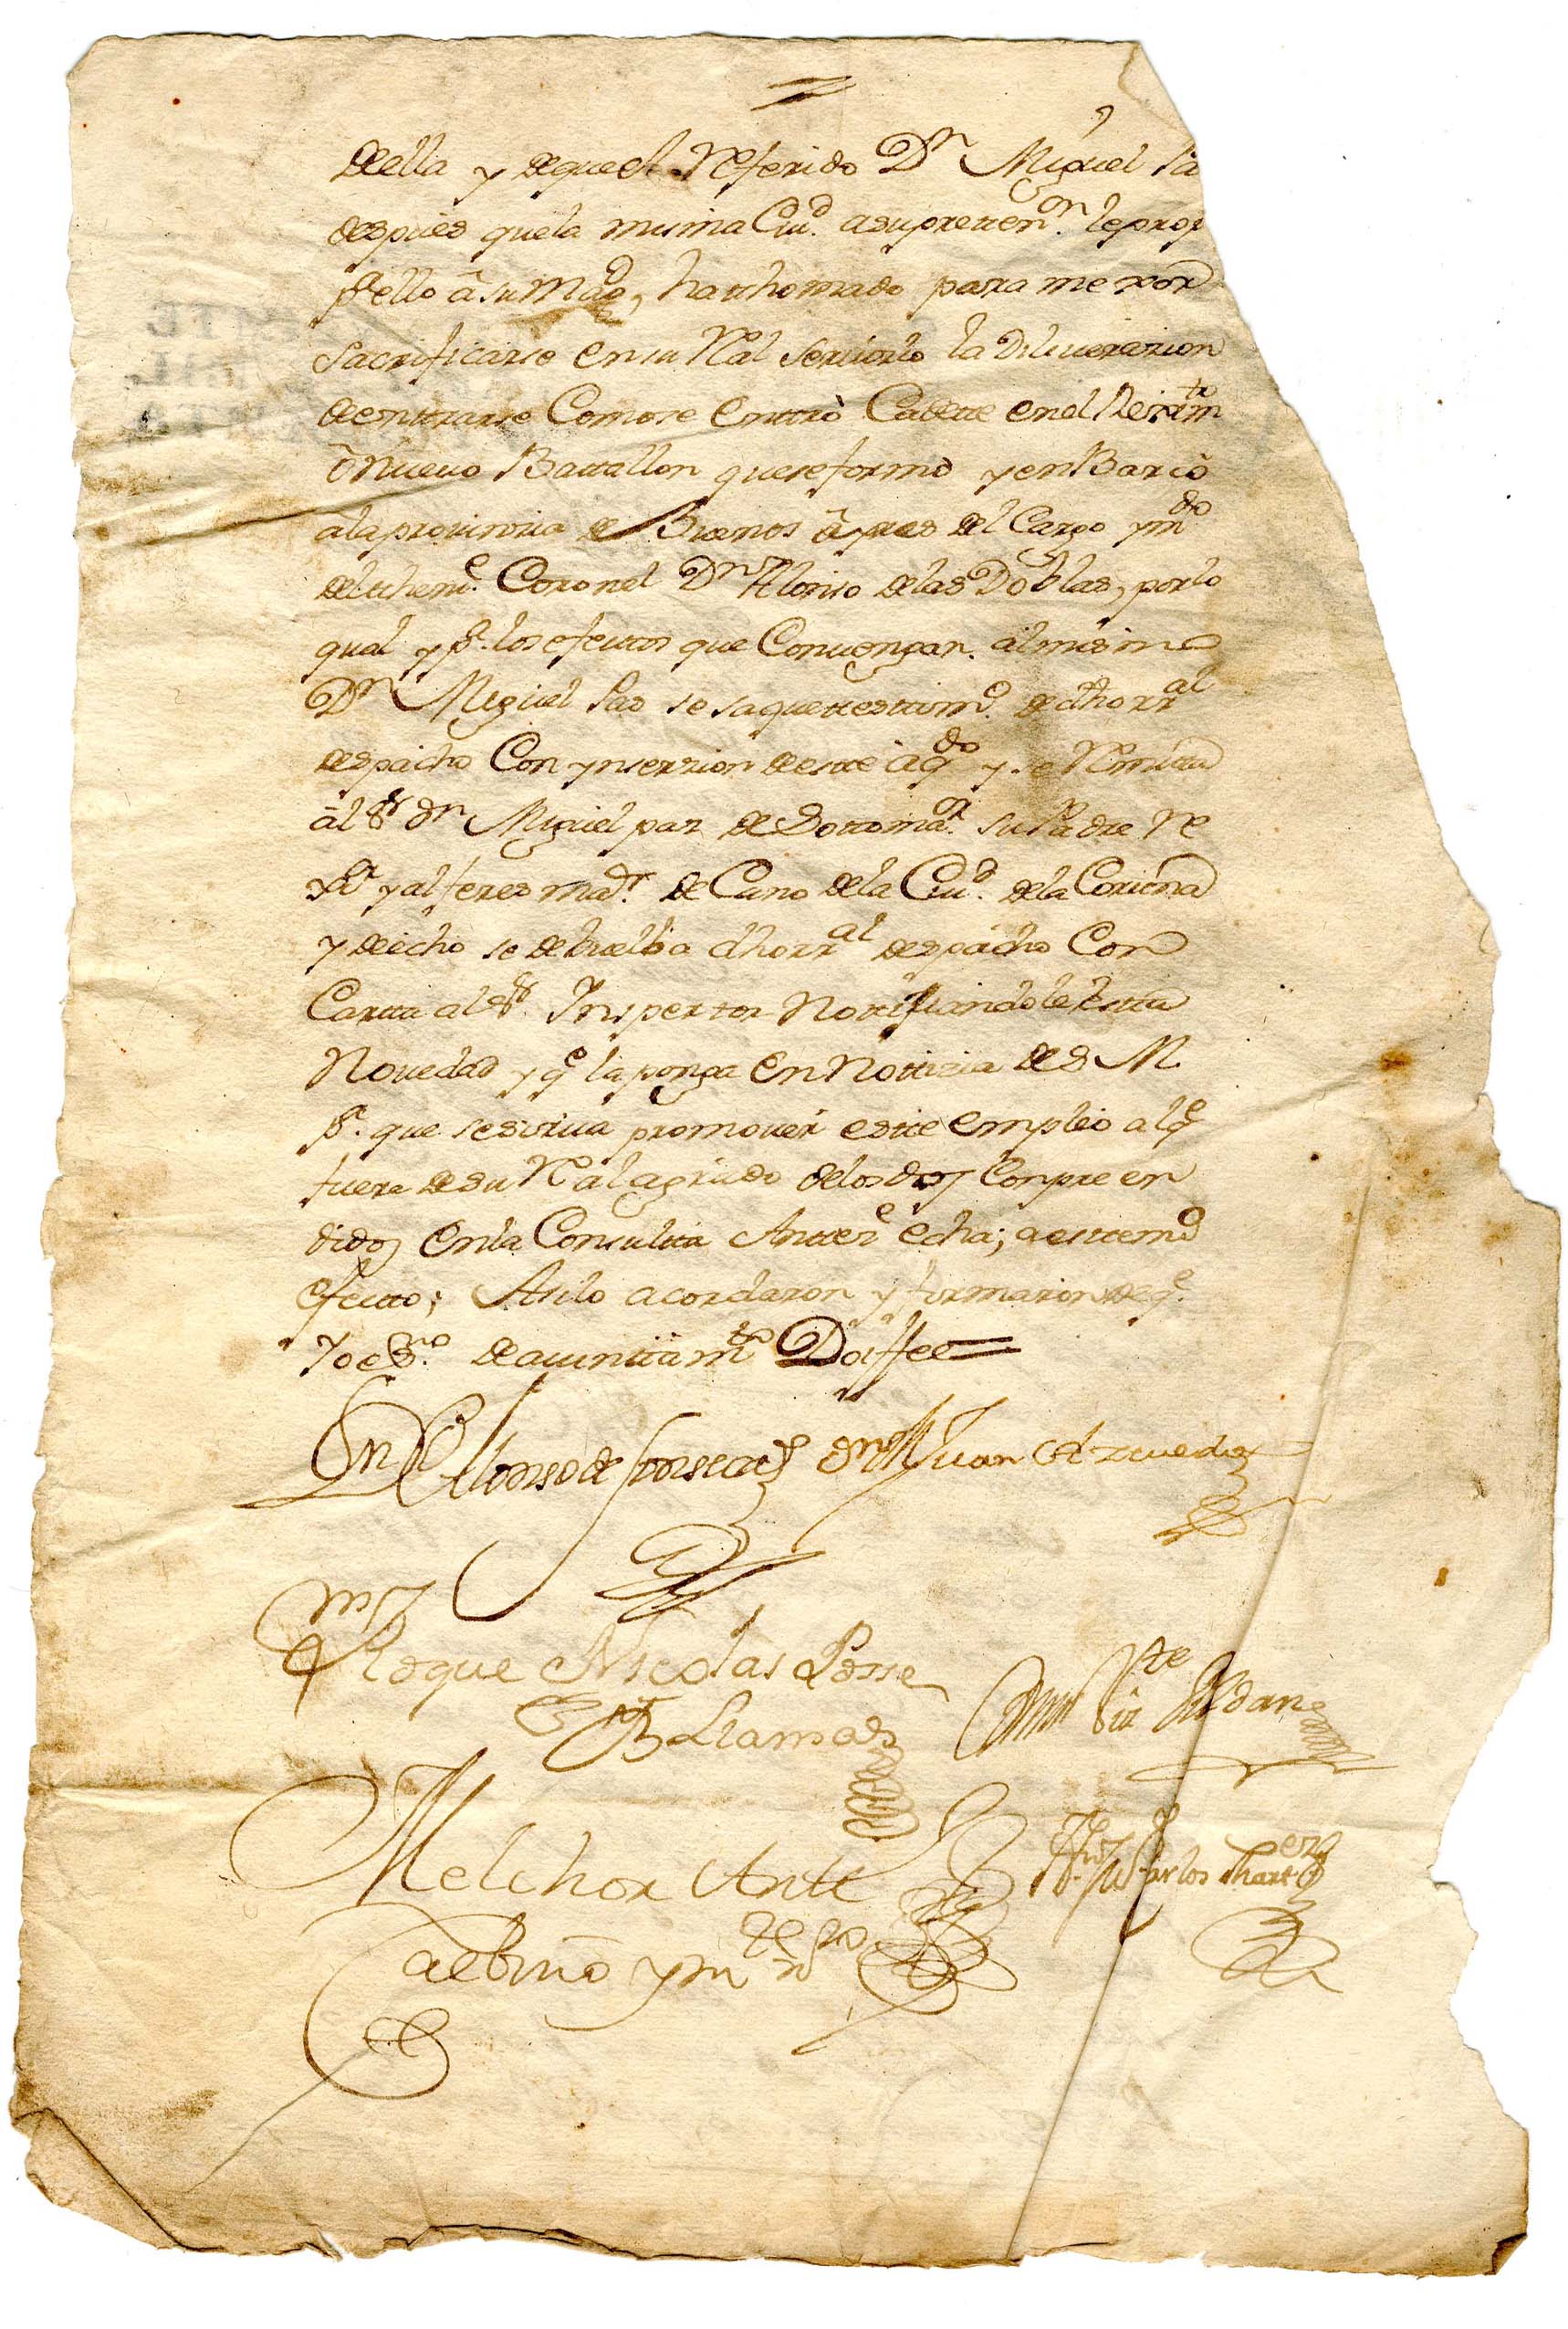 deella y de que el referido Dn Miguel Pa
despues que la misma Ciud. a su pretten.on le prop
p.a ello â su Magd, ha tthomado para mexor
sacrificarse en su Ral servicio la deliverazion
de enttrarse Como se enttrò Cadette en el Rexim.to
ô nuevo Battallon que se formò y enBarcò
a la provinzia de Buenos ayres del Cargo y mdo
del thente. Coronel Dn Alonso de las Doblas, por lo
qual y pa. los efecttos que Convengan. al mismo
Dn Miguel Paz se saque testtimo. de dho rral
despacho Con ynserzion de estte aqdo y se Remitta
âl Sr Dn Miguel paz de Sottomaor. su Padre Re
xor y alferes maor. de Cano de la Ciud. de la Coruña
y de echo se debuelba dho rral despacho Con
Cartta al Sr. Inspector Nottiziandole estta
Novedad y qe la ponga en Nottizia de S M
pa. que se sirva promover estte empleo al qe
fuere de su Ral agrado de los dos Conpreen
didos en la Consultta Antter echa; a estte mo
efectto; Asi lo acordaron y firmaron de qe.
Yo esno. de aiunttamto Doiffee=
Dn Alonso de Fonseca Dn Juan Azevedo
Roque Nicolas Posse
Llamas
Roldan
Melchor Antt
Carlos Martez